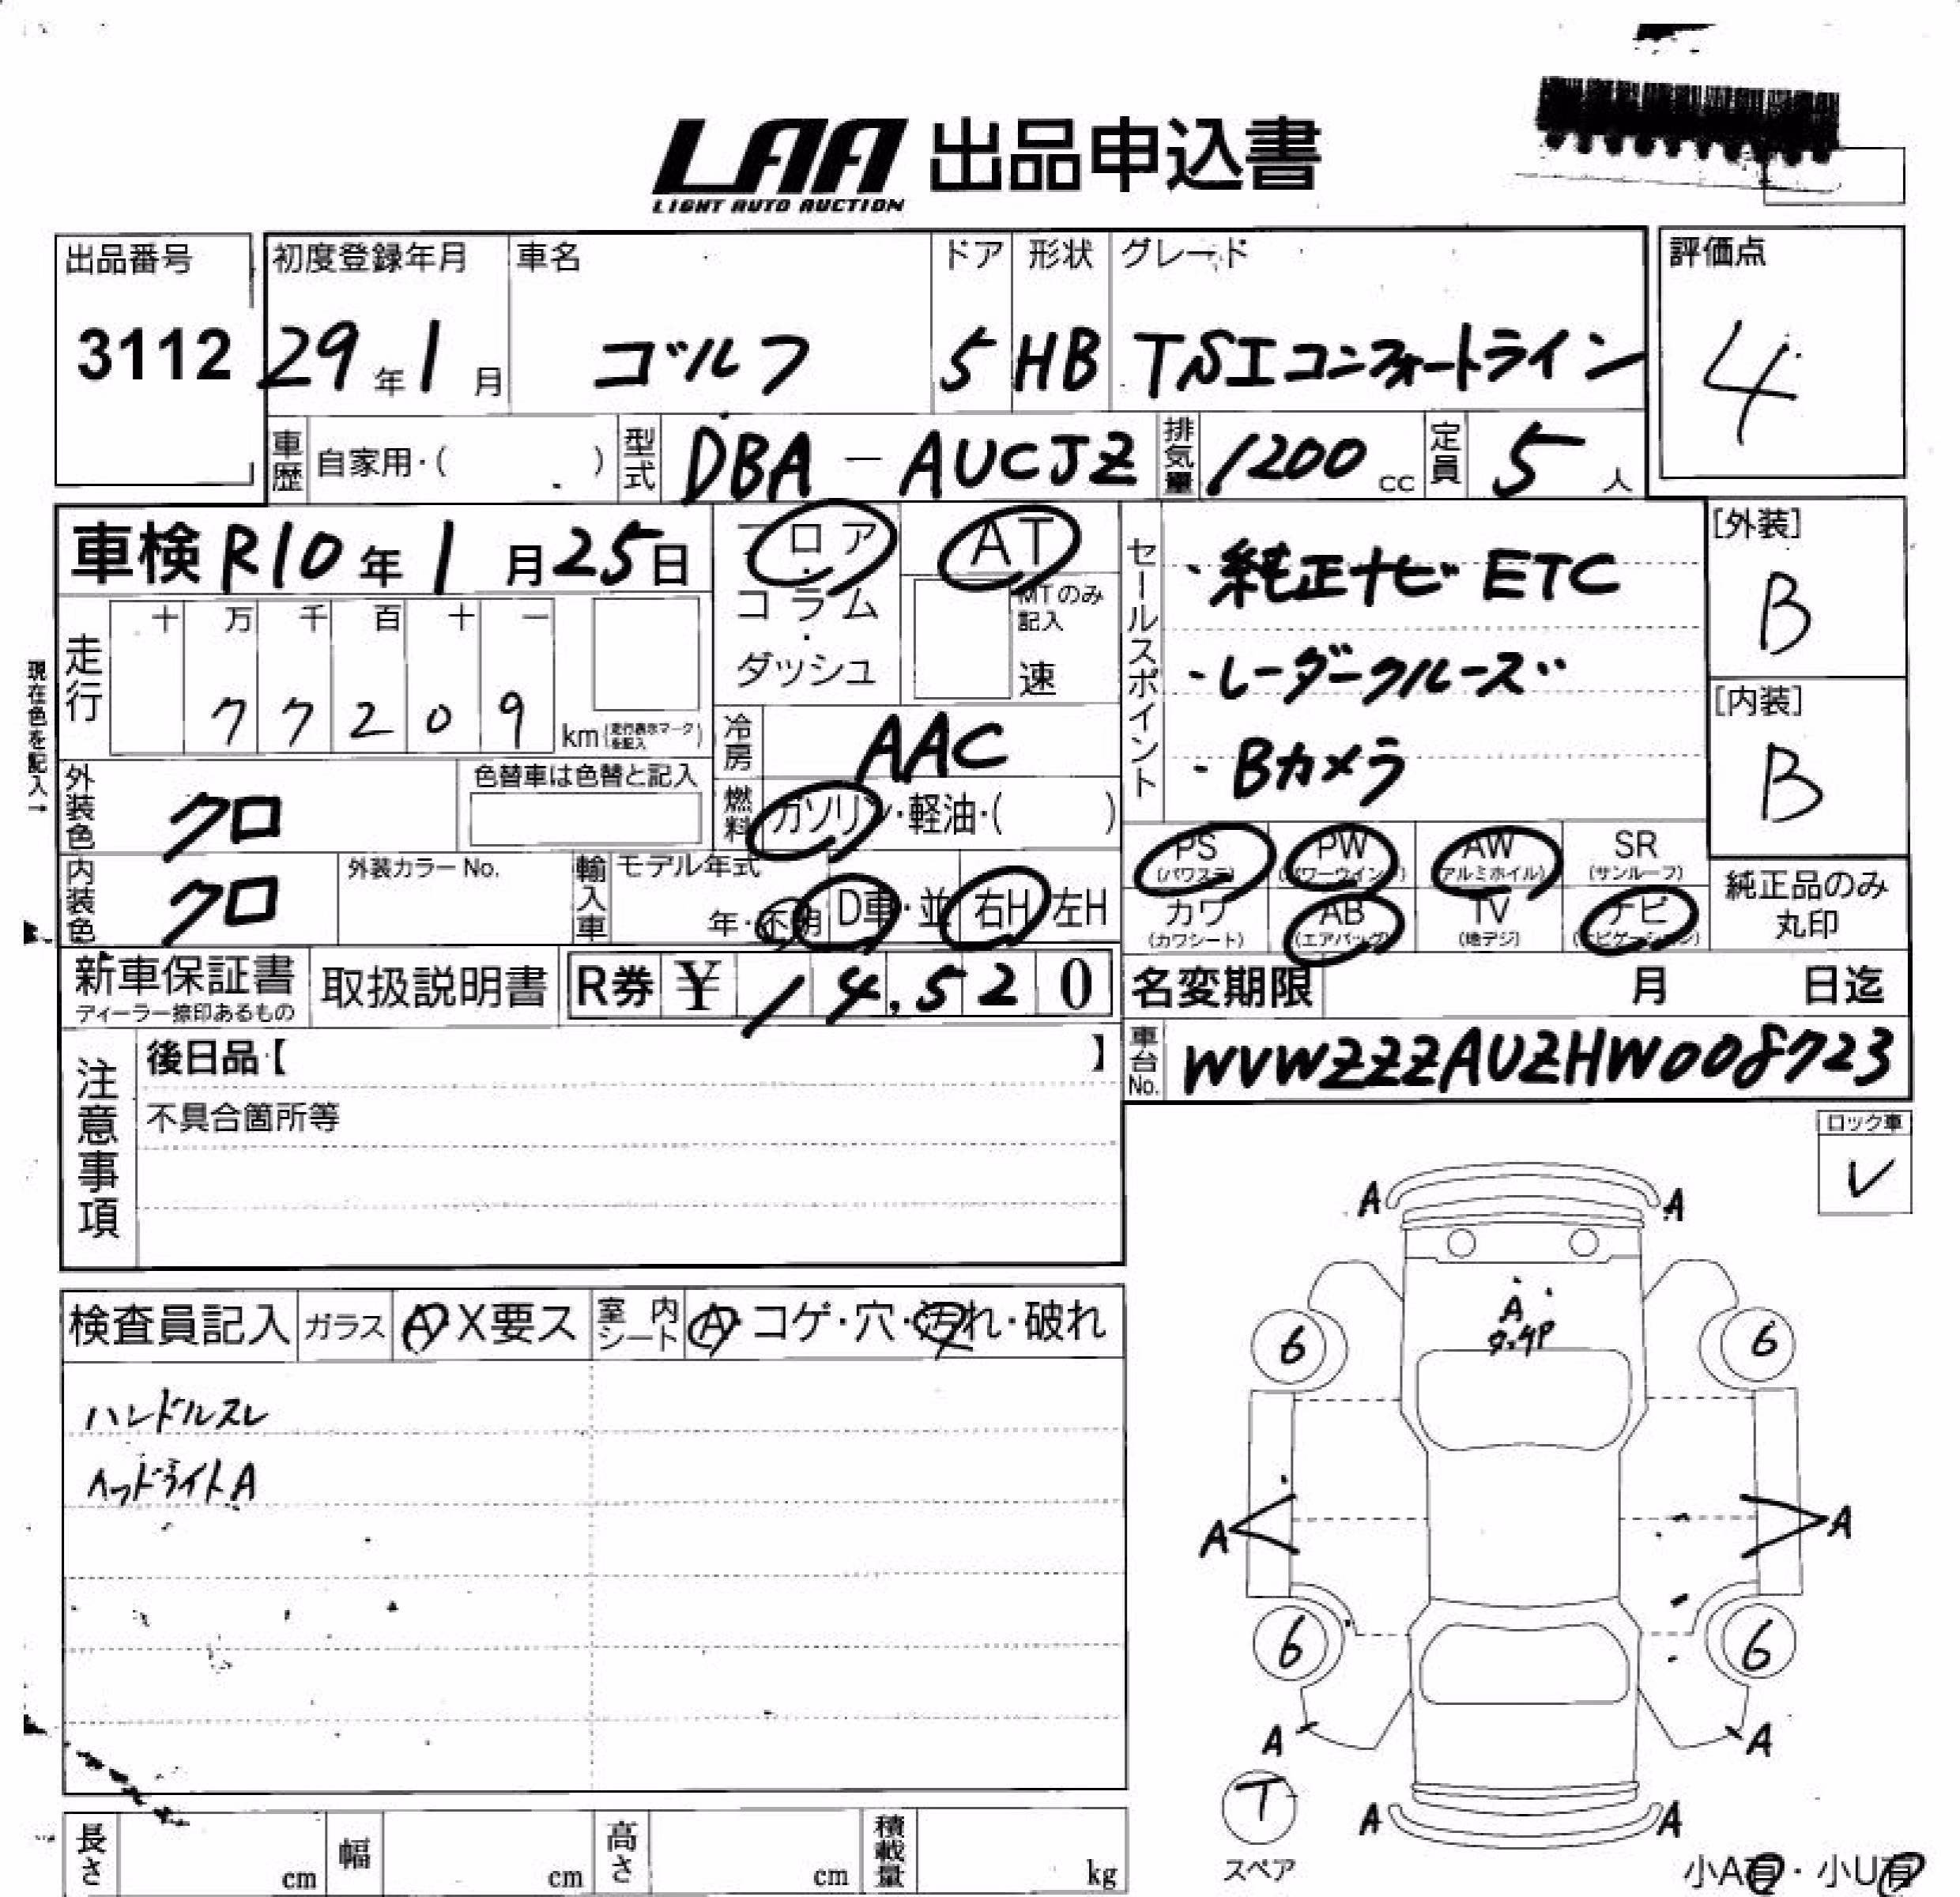 LAA 出品申込書
LIGHT AUTO AUCTION
出品番号
3112
初度登録年月
29年1月
車名
ゴルフ
ドア
5
形状
HB
グレード
TSIコンフォートライン
評価点
4
車歴
自家用・( )
型式
DBA-AUCJZ
排気量
1200cc
定員
5人
車検 R10年1月25日
フロア・コラム・ダッシュ
AT
MTのみ記入
速
セールスポイント
・純正ナビ ETC
・レーダークルーズ
・Bカメラ
[外装]
B
[内装]
B
現在色を記入→
走行
十 万 千 百 十 一
7 7 2 0 9 km (走行表示マークを記入)
冷房
AAC
燃料
ガソリン・軽油・( )
外装色
クロ
色替車は色替と記入
内装色
クロ
外装カラーNo.
輸入車
モデル年式
年・不明
D車・並
右H 左H
PS (パワステ)
PW (パワーウインド)
AW (アルミホイル)
SR (サンルーフ)
カワ (カワシート)
AB (エアバッグ)
TV (地デジ)
ナビ (ナビゲーション)
純正品のみ
丸印
新車保証書
ディーラー捺印あるもの
取扱説明書
R券 ¥ 14,520
名変期限 月 日迄
車台No.
WVWZZZAUZHW008723
注意事項
後日品【 】
不具合箇所等
ロック車
✓
検査員記入
ガラス
A X要ス
室内シート
A・コゲ・穴・汚れ・破れ
ハンドルスレ
ヘッドライトA
A A
A
6 6
A A
6 6
A A
T
スペア
A A
小A有・小U有
長さ cm
幅 cm
高さ cm
積載量 kg